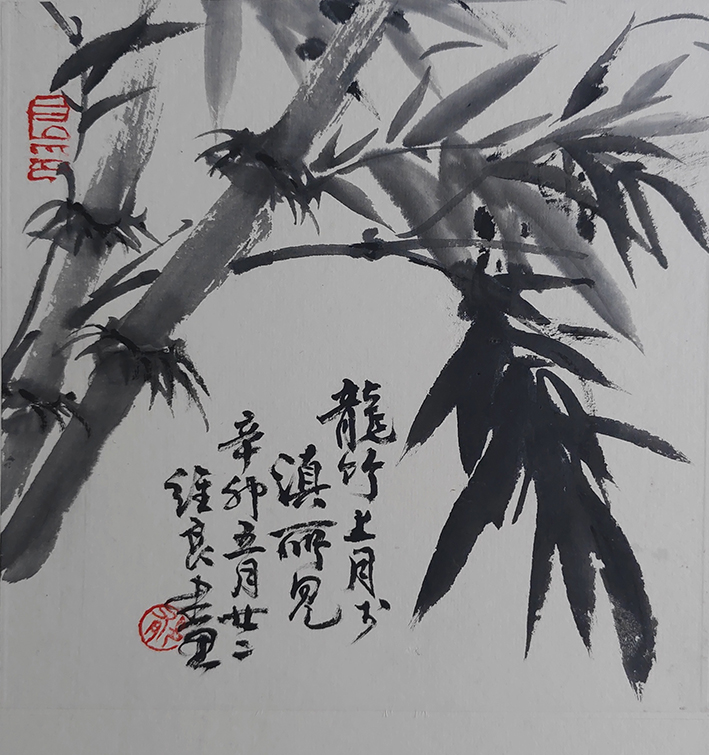 龍竹上月于
滇所見
辛卯五月廿二
維良畫